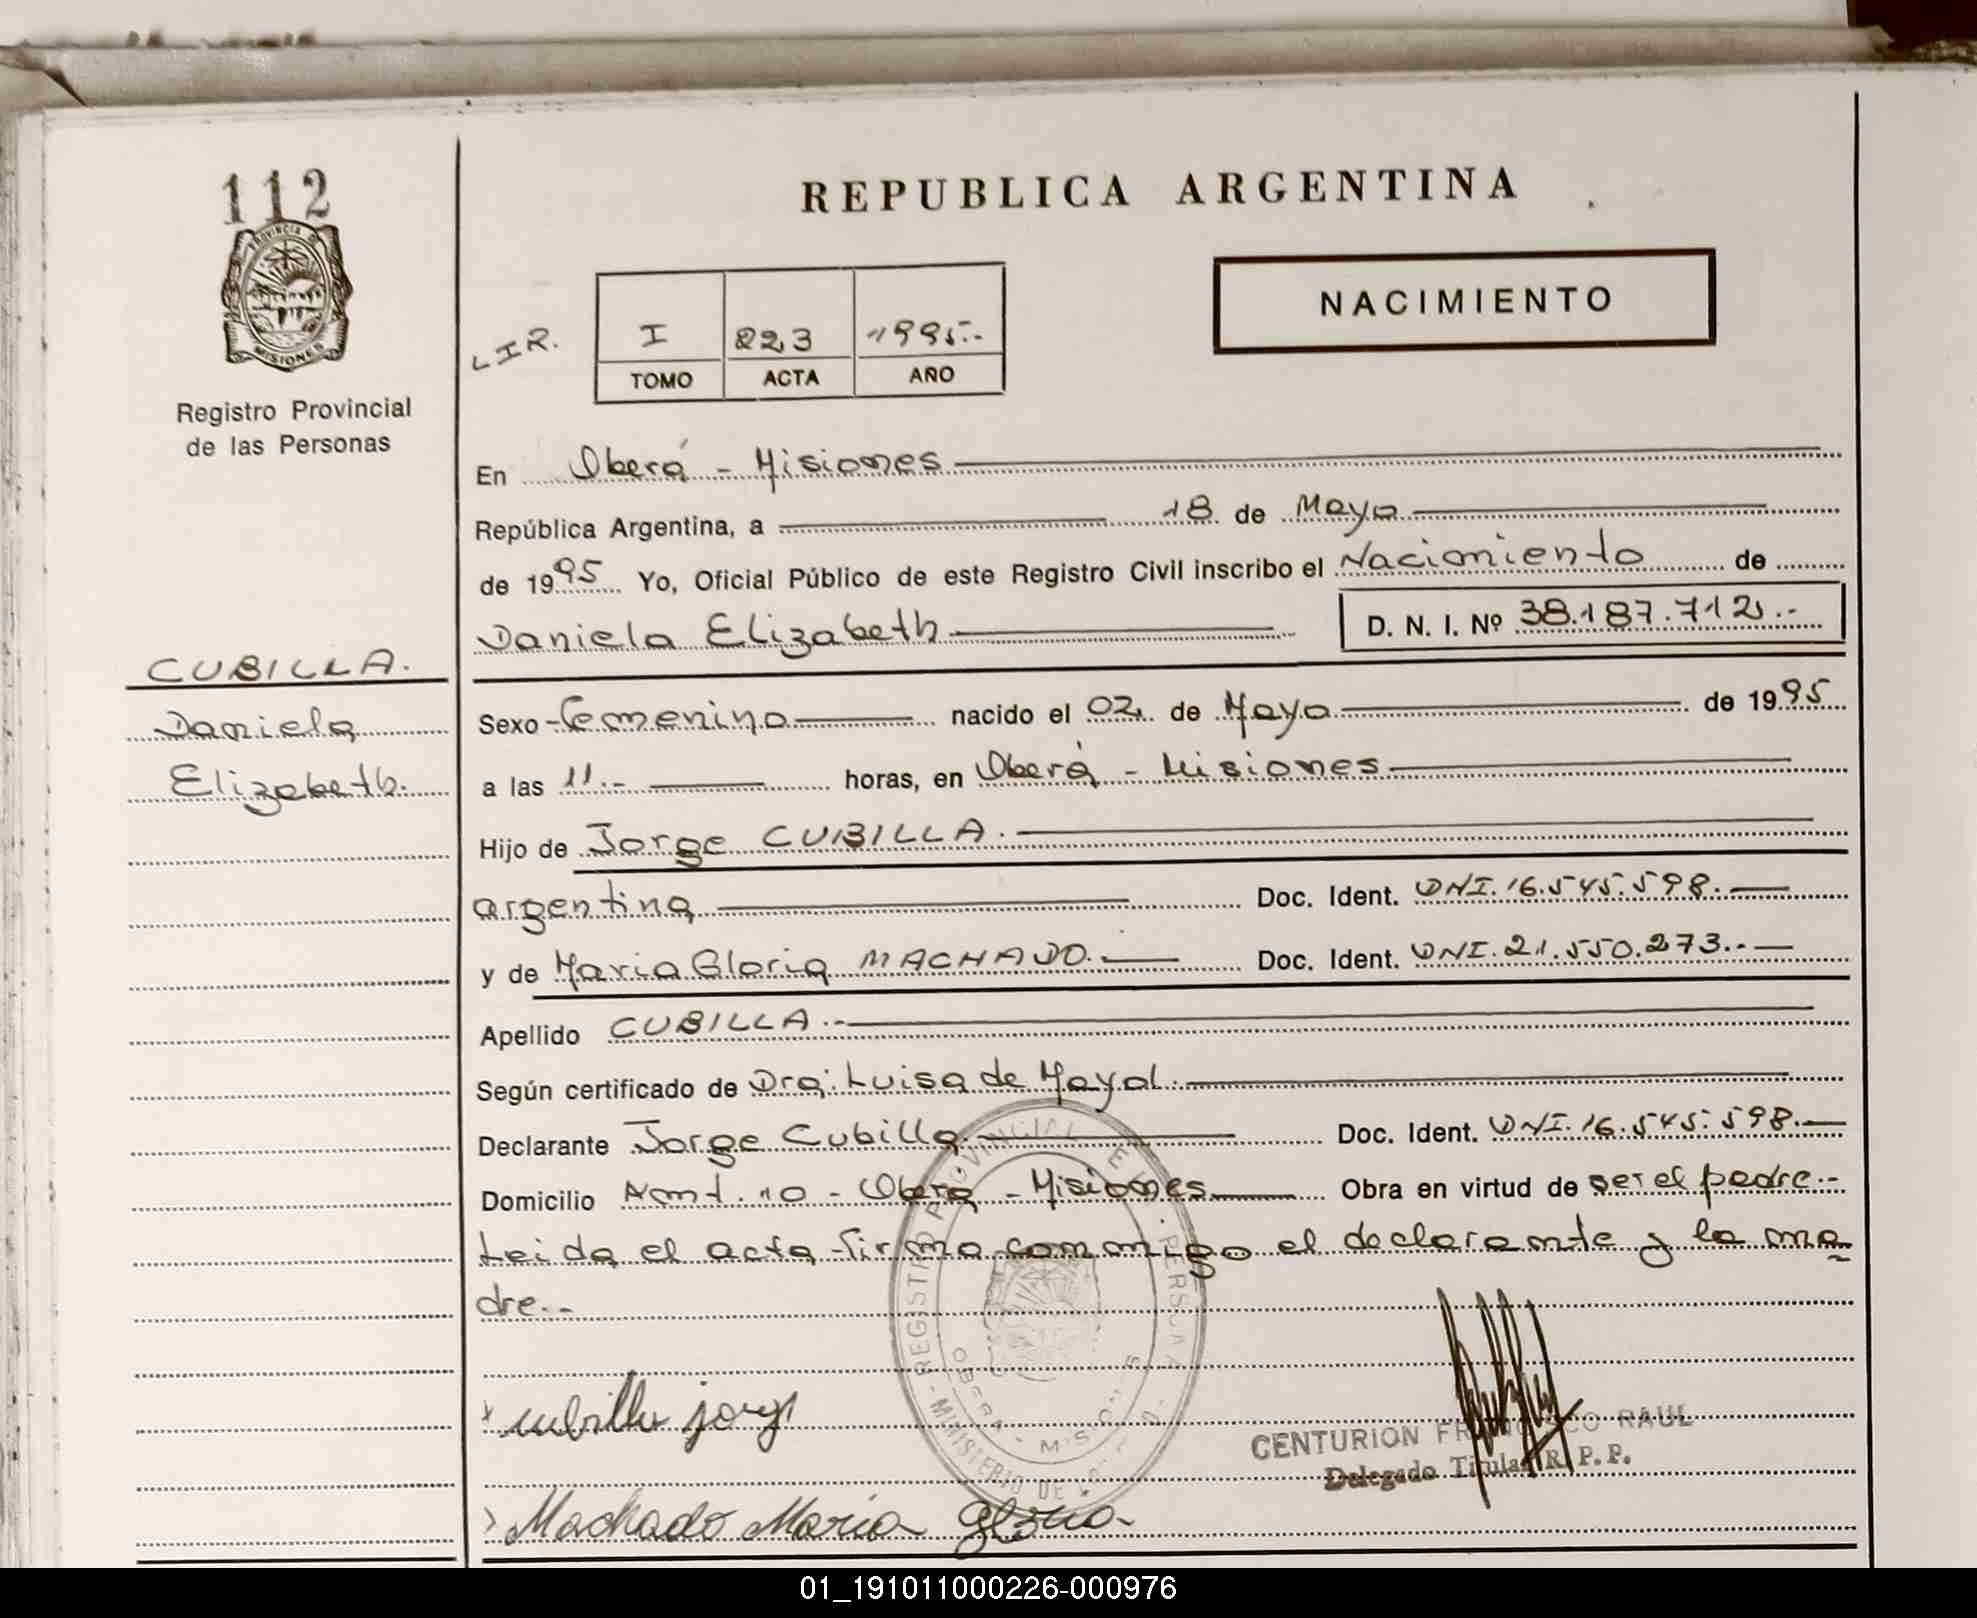 112
PROVINCIA DE
MISIONES
Registro Provincial
de las Personas
CUBILLA.
Daniela
Elizabeth.
REPUBLICA ARGENTINA
NACIMIENTO
I 223 1995.-
TOMO ACTA AÑO
En Oberá - Misiones
República Argentina, a 18 de Mayo
de 1995 Yo, Oficial Público de este Registro Civil inscribo el Nacimiento de
Daniela Elizabeth D. N. I. Nº 38.187.712.-
Sexo Femenino nacido el 02 de Mayo de 1995
a las 11.- horas, en Oberá - Misiones
Hijo de Jorge CUBILLA.
argentina Doc. Ident. DNI. 16.545.598.
y de Maria Gloria MACHADO. Doc. Ident. DNI. 21.550.273.-
Apellido CUBILLA.-
Según certificado de Dra. Luisa de Mayol.
Declarante Jorge Cubilla. Doc. Ident. DNI. 16.545.598.
Domicilio 10 - Oberá - Misiones Obra en virtud de ser el padre.-
Leida el acta firma conmigo el declarante y la ma
dre.-
Cubilla jorge
CENTURION FRANCISCO RAUL
Delegado Titular R. P. P.
Machado Maria Gloria
01_191011000226-000976